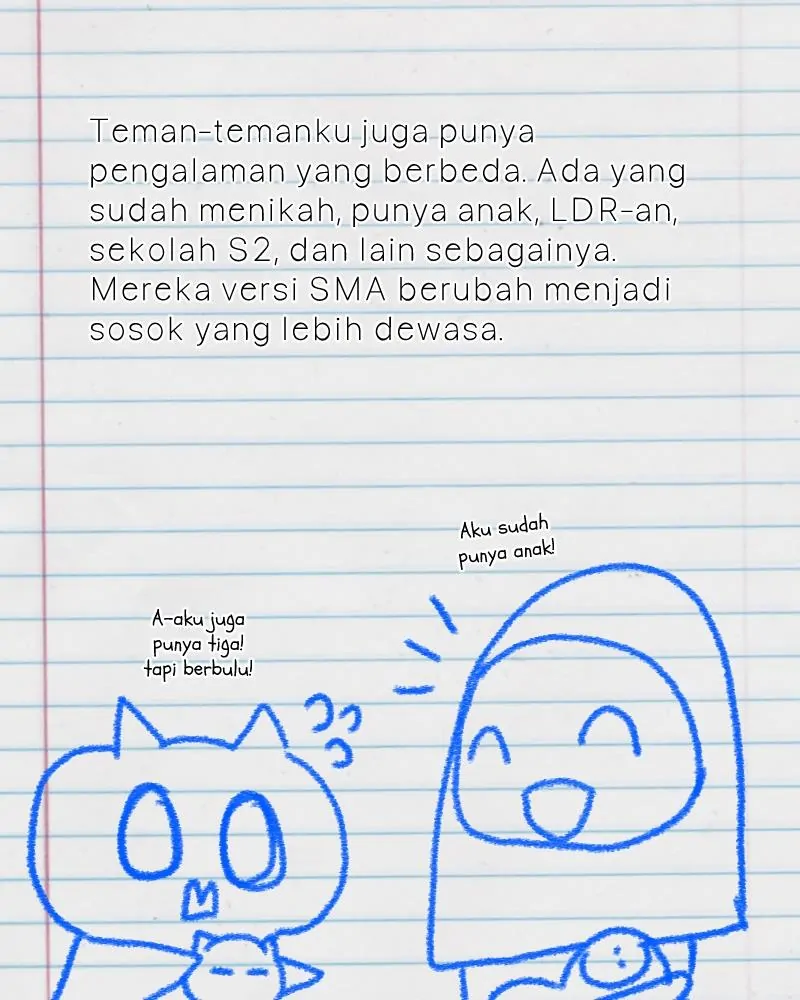 Teman-temanku juga punya
pengalaman yang berbeda. Ada yang
sudah menikah, punya anak, LDR-an,
sekolah S2, dan lain sebagainya.
Mereka versi SMA berubah menjadi
sosok yang lebih dewasa.
Aku sudah
punya anak!
A-aku juga
punya tiga!
tapi berbulu!